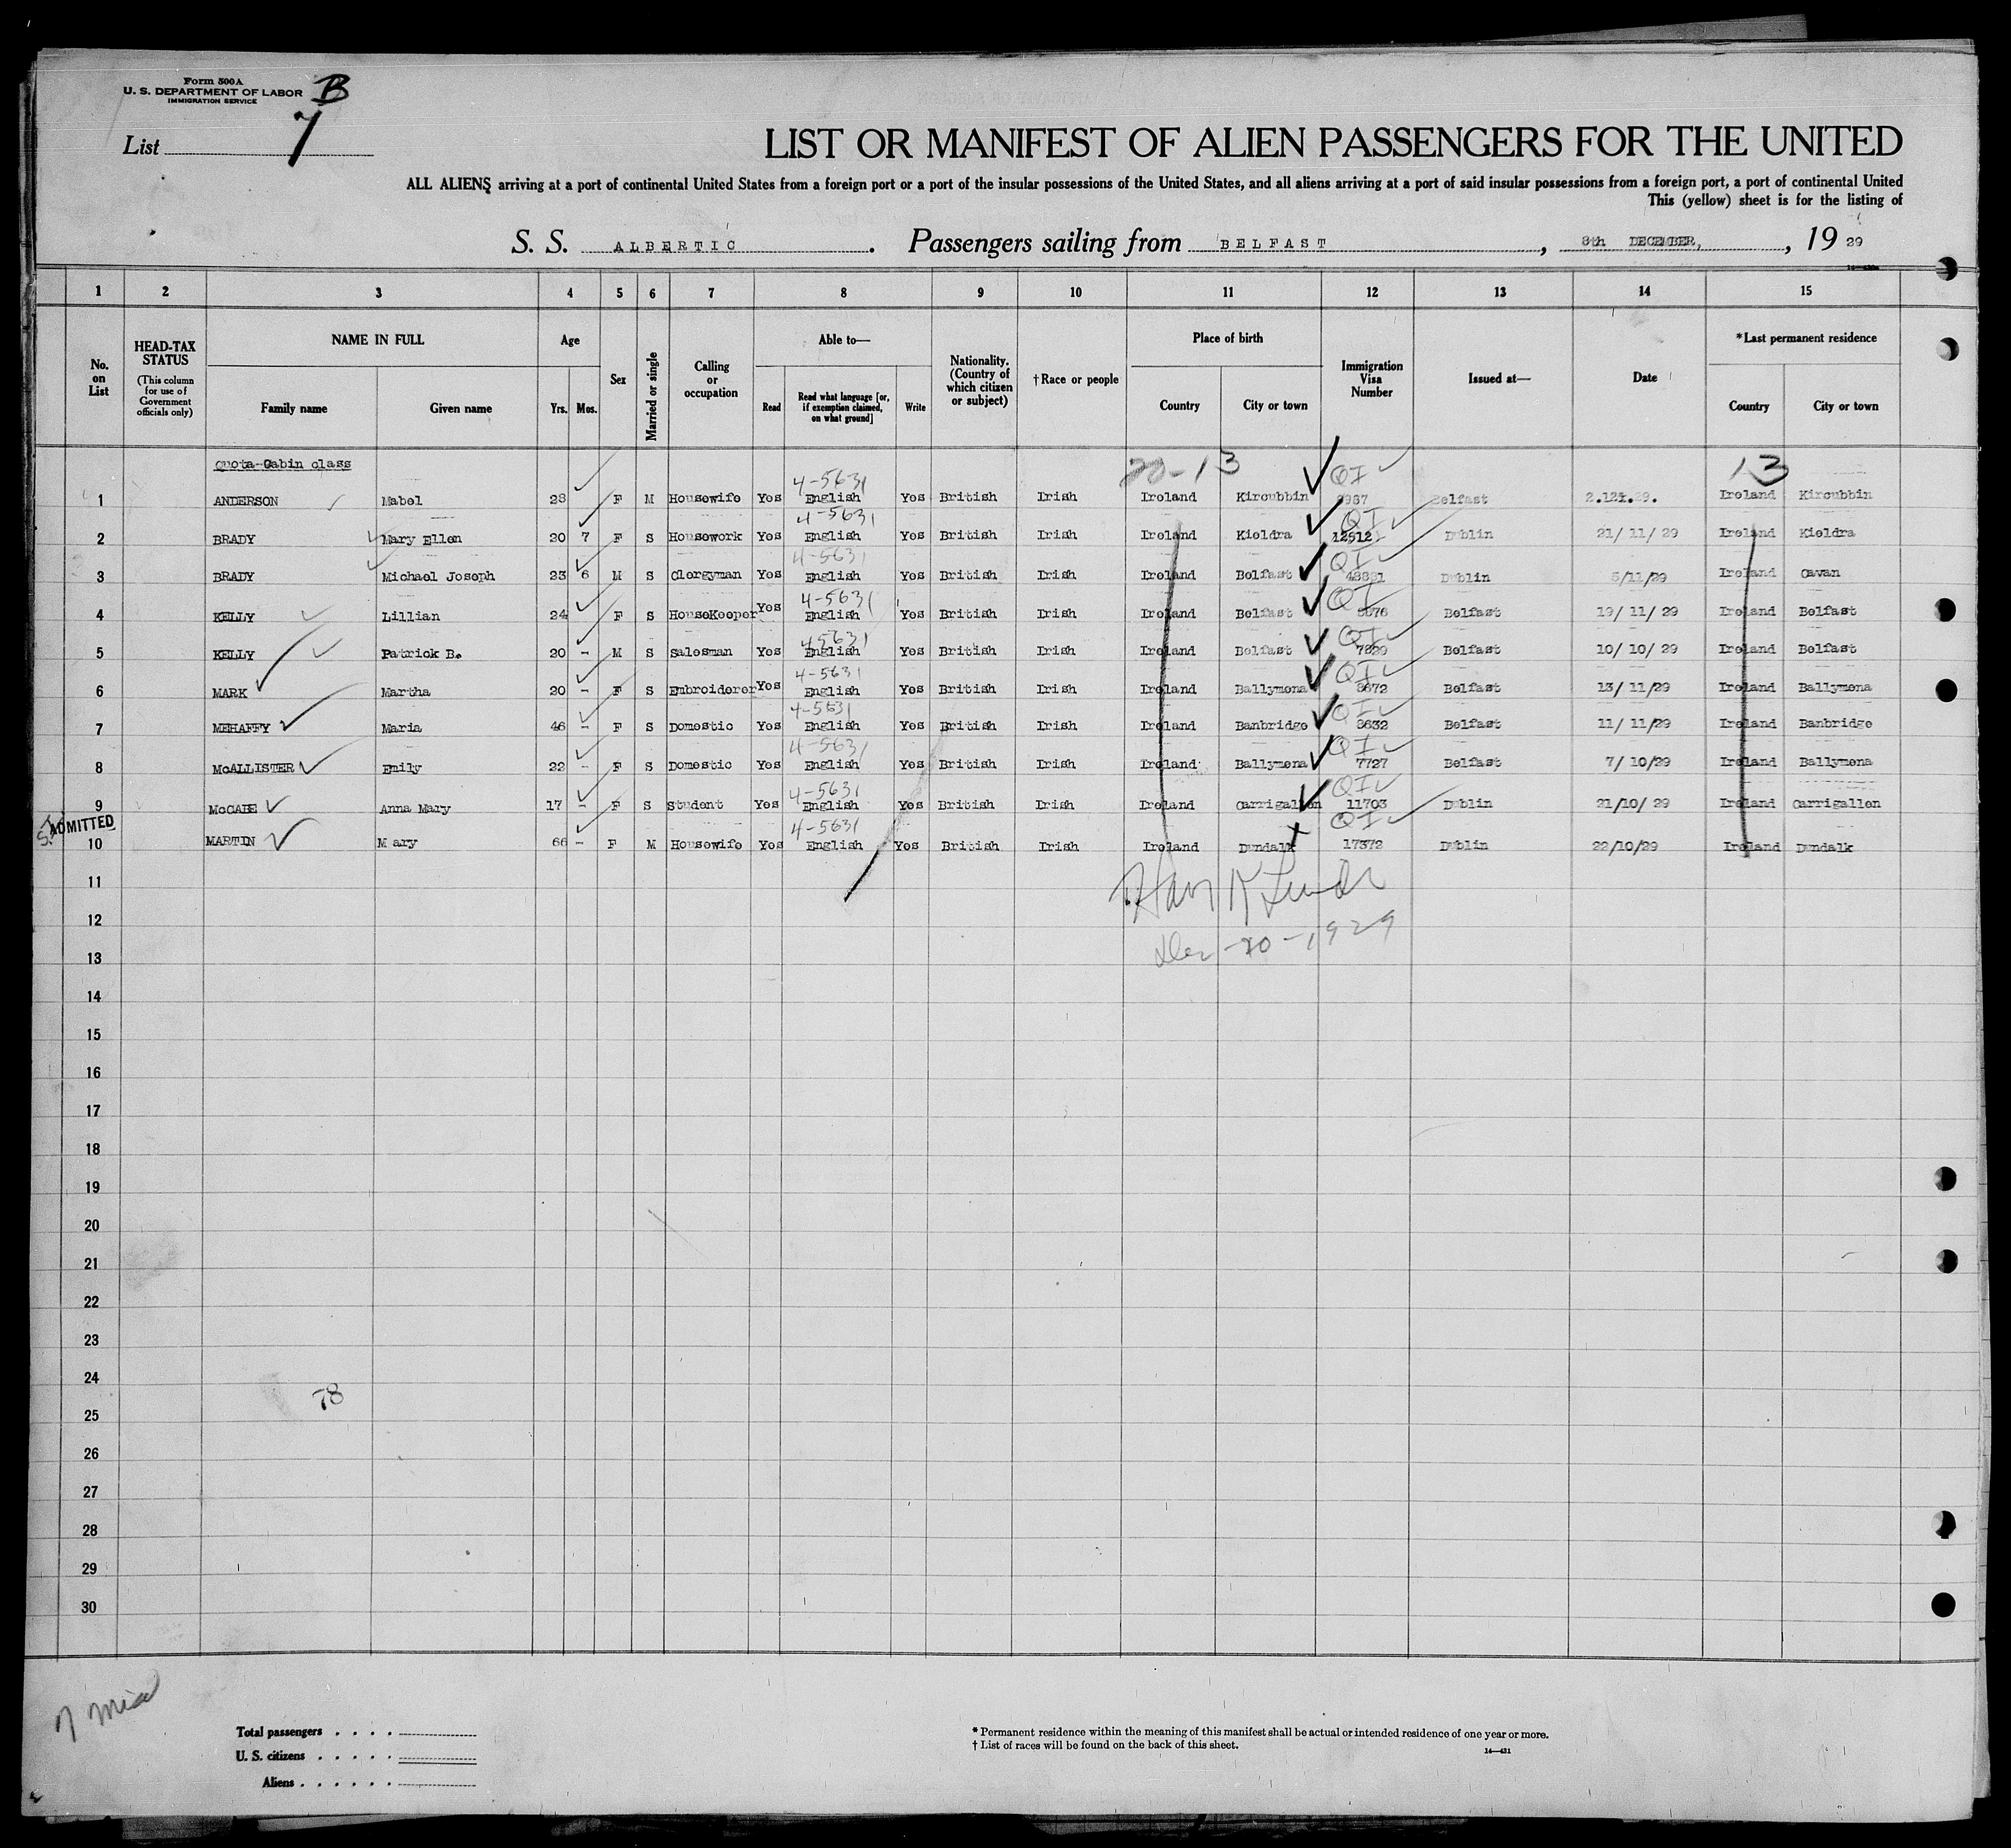 Form 500 A
U. S. DEPARTMENT OF LABOR
IMMIGRATION SERVICE
B
List 7
LIST OR MANIFEST OF ALIEN PASSENGERS FOR THE UNITED
ALL ALIENS arriving at a port of continental United States from a foreign port or a port of the insular possessions of the United States, and all aliens arriving at a port of said insular possessions from a foreign port, a port of continental United
This (yellow) sheet is for the listing of
S. S. ALBERTIC. Passengers sailing from BELFAST, 8th DECEMBER, , 19 29
1 2 3 4 5 6 7 8 9 10 11 12 13 14 15
No. on List
HEAD-TAX STATUS (This column for use of Government officials only)
NAME IN FULL Family name Given name
Age Yrs. Mos.
Sex
Married or single
Calling or occupation
Able to— Read Read what language [or, if exemption claimed, on what ground] Write
Nationality. (Country of which citizen or subject)
†Race or people
Place of birth Country City or town
Immigration Visa Number
Issued at—
Date
*Last permanent residence Country City or town
Quota-Cabin class
20-13 QI 13
4-5631
1 ANDERSON Mabel 28 F M Housewife Yes English Yes British Irish Ireland Kircubbin Belfast Ireland Kircubbin
4-5631 QI
2 BRADY Mary Ellen 20 7 F S Housework Yes English Yes British Irish Ireland Kieldra 12512 Dublin 21/ 11/ 29 Ireland Kieldra
4-5631 QI
3 BRADY Michael Joseph 23 6 M S Clergyman Yes English Yes British Irish Ireland Belfast Dublin 5/11/29 Ireland Cavan
4-5631 QI
4 KELLY Lillian 24 F S HouseKeeper Yes English Yes British Irish Ireland Belfast Belfast 19/ 11/ 29 Ireland Belfast
45631 QI
5 KELLY Patrick B. 20 - M S Salesman Yes English Yes British Irish Ireland Belfast Belfast 10/ 10/ 29 Ireland Belfast
4-5631 QI
6 MARK Martha 20 - F S Embroiderer Yes English Yes British Irish Ireland Ballymena 8672 Belfast 13/ 11/29 Ireland Ballymena
4-5631 QI
7 MEHAFFY Maria 46 - F S Domestic Yes English Yes British Irish Ireland Banbridge 8632 Belfast 11/ 11/29 Ireland Banbridge
4-5631 QI
8 McALLISTER Emily 22 - F S Domestic Yes English Yes British Irish Ireland Ballymena 7727 Belfast 7/ 10/29 Ireland Ballymena
4-5631 QI
9 McCABE Anna Mary 17 - F S Student Yes English Yes British Irish Ireland Carrigallen 11703 Dublin 21/10/ 29 Ireland Carrigallen
ADMITTED 4-5631 QI
10 MARTIN Mary 66 - F M Housewife Yes English Yes British Irish Ireland Dundalk 17372 Dublin 22/10/29 Ireland Dundalk
11
12
Dec-20-1929
13
14
15
16
17
18
19
20
21
22
23
24
78
25
26
27
28
29
30
Total passengers . . . .
U. S. citizens . . . . .
Aliens . . . . . .
* Permanent residence within the meaning of this manifest shall be actual or intended residence of one year or more.
† List of races will be found on the back of this sheet.
14—431